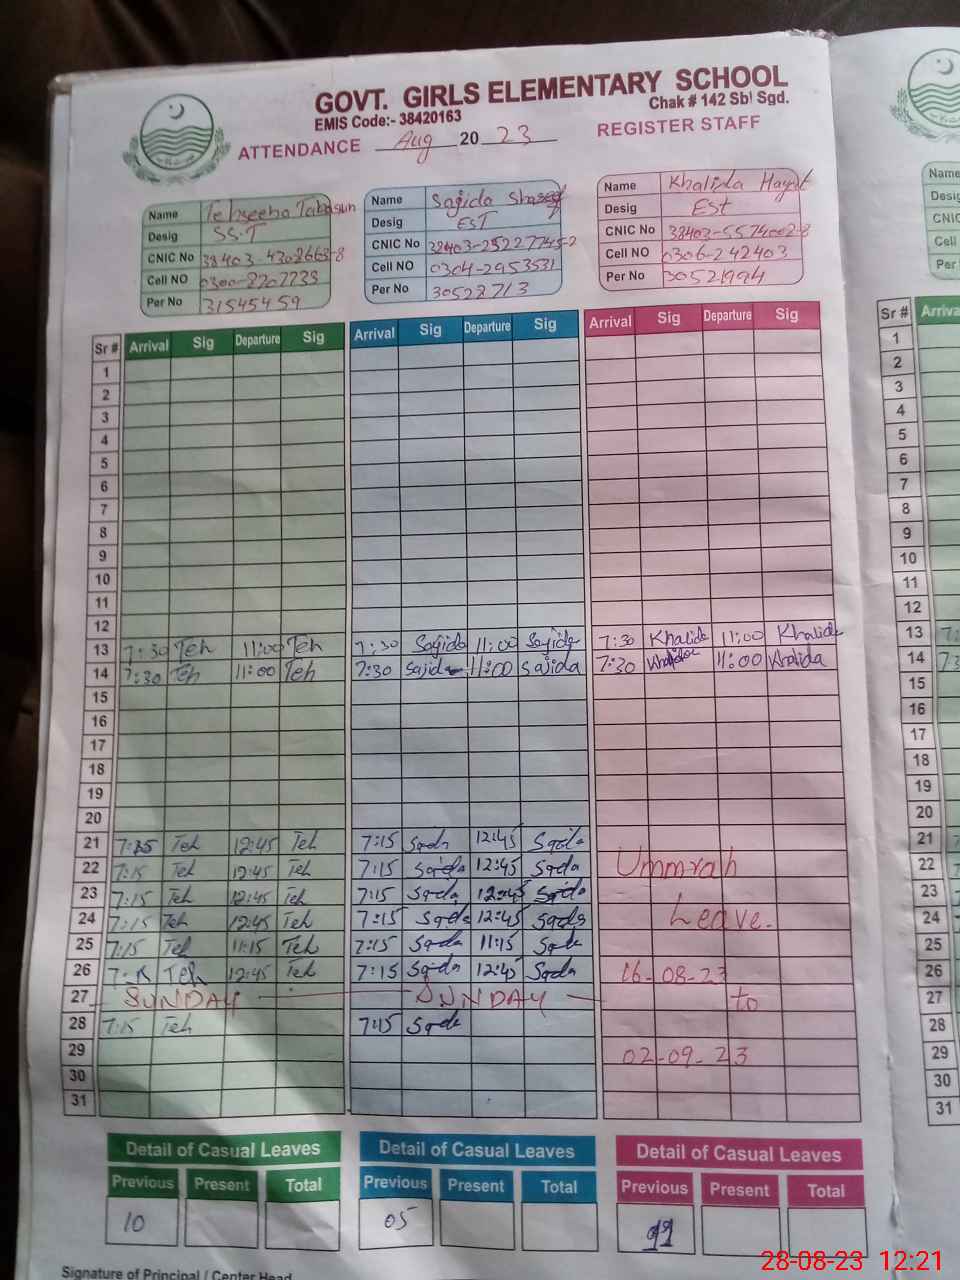 GOVT. GIRLS ELEMENTARY SCHOOL
EMIS Code:- 38420163
Chak # 142 Sb Sgd.
ATTENDANCE Aug 2023 REGISTER STAFF
Name Tehseeba Tabasum
Desig SS.T
CNIC No
Cell NO 0300-8207233
Per No 31545459
Name Sajida
Desig EST
CNIC No
Cell NO 0304-2953531
Per No 30528713
Name Khalida Hayat
Desig Est
CNIC No
Cell NO 0306-242403
Per No 30521994
Name
Desig
CNIC
Cell
Per
Sr # Arrival Sig Departure Sig Arrival Sig Departure Sig Arrival Sig Departure Sig Sr # Arriva
1 1
2 2
3 3
4 4
5 5
6 6
7 7
8 8
9 9
10 10
11 11
12 12
13 7:30 Teh 11:00 Teh 7:30 Sajida 11:00 Sajida 7:30 Khalida 11:00 Khalida 13
14 7:30 Teh 11:00 Teh 7:30 Sajida 11:00 Sajida 7:30 Khalida 11:00 Khalida 14
15 15
16 16
17 17
18 18
19 19
20 20
21 7:15 Teh 12:45 Teh 7:15 12:45 21
22 7:15 Teh 12:45 Teh 7:15 12:45 Ummrah 22
23 7:15 Teh 12:45 Teh 7:15 12:45 23
24 7:15 Teh 12:45 Teh 7:15 12:45 Leave. 24
25 7:15 Teh 11:15 Teh 7:15 11:15 25
26 Teh 12:45 Teh 7:15 12:45 16-08-23 26
27 SUNDAY SUNDAY to 27
28 7:15 Teh 7:15 28
29 02-09-23 29
30 30
31 31
Detail of Casual Leaves Detail of Casual Leaves Detail of Casual Leaves
Previous Present Total Previous Present Total Previous Present Total
10 05
Signature of Principal / Center Head
28-08-23 12:21